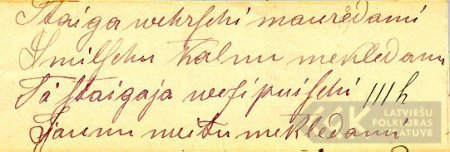 Staiga wehrschi mauredami
Smilschu kalnu mekledami
Tà staigaja wezi puischi
Jaunu meitu mekledami
LATVIEŠU
FOLKLORAS
KRĀTUVE